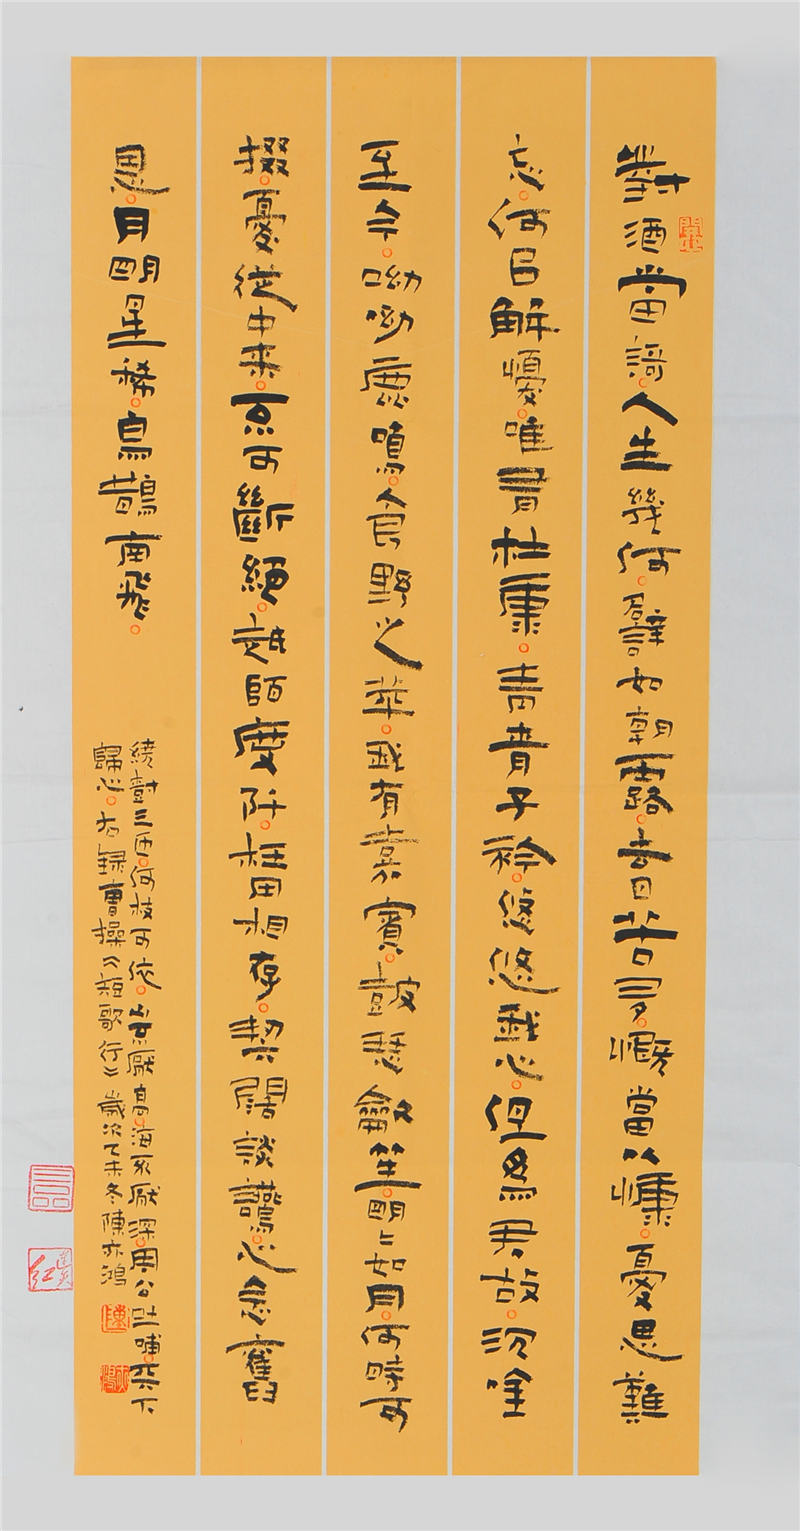 對酒當謌。人生幾何。譬如朝露。去日苦多。慨當以慷。憂思難
忘。何㠯解懮。唯有杜康。青青子衿。悠悠我心。但為君故。沉唫
至今。呦呦鹿鳴。食野之苹。我有嘉賓。鼓瑟龡笙。明々如月。何時可
掇。憂從中来。不可斷絕。越陌度阡。枉用相存。契闊談讌。心念舊
恩。月明星稀。烏鵲南飛。
繞樹三匝。何枝可依。山不厭高。海不厭深。周公吐哺。天下
歸心。右録曹操《短歌行》歲次乙未冬陳亦鴻